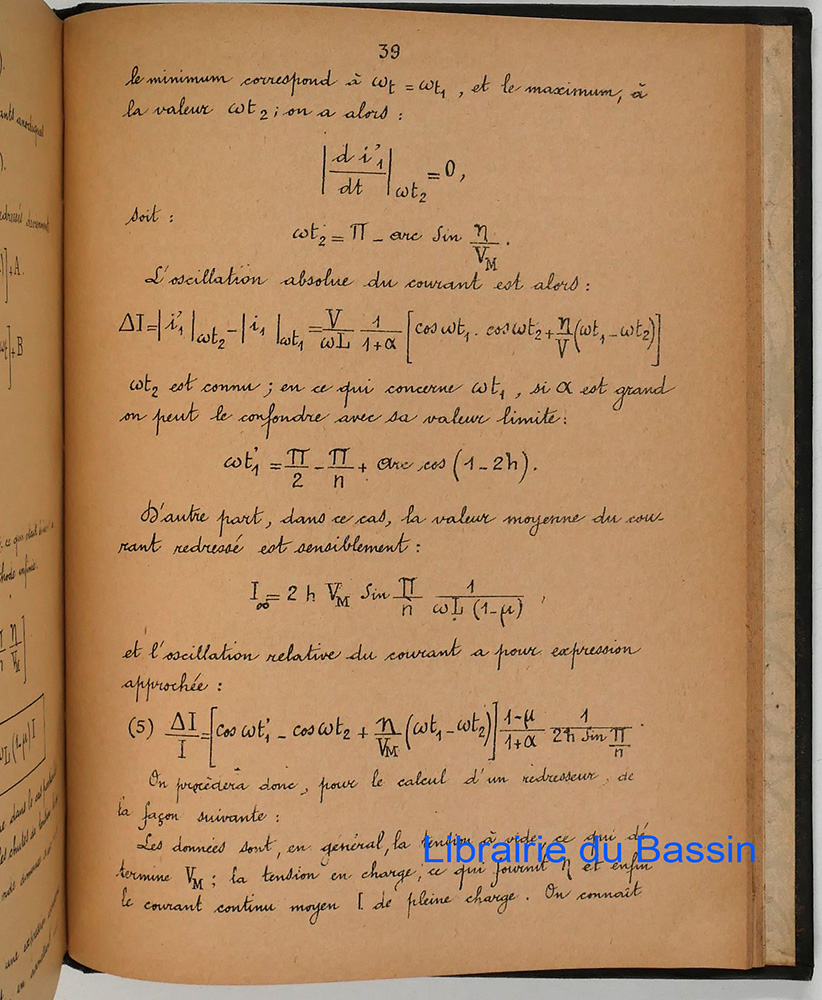 39
le minimum correspond à ωt = ωt₁, et le maximum, à
la valeur ωt₂ ; on a alors :
|d i'₁/dt|ωt₂ = 0,
soit :
ωt₂ = Π - arc sin η/V_M.
L'oscillation absolue du courant est alors :
ΔI = |i'₁|ωt₂ - |i₁|ωt₁ = V/ωL 1/(1+α) [cos ωt₁ . cos ωt₂ + η/V (ωt₁ - ωt₂)]
ωt₂ est connu ; en ce qui concerne ωt₁, si α est grand
on peut le confondre avec sa valeur limite :
ωt'₁ = Π/2 - Π/n + arc cos (1 - 2h).
D'autre part, dans ce cas, la valeur moyenne du cou-
rant redressé est sensiblement :
I∞ = 2 h V_M sin Π/n 1/(ωL (1-μ)) ,
et l'oscillation relative du courant a pour expression
approchée :
(5) ΔI/I = [cos ωt'₁ - cos ωt₂ + η/V_M (ωt₁ - ωt₂)] (1-μ)/(1+α) 1/(2h sin Π/n).
On procèdera donc, pour le calcul d'un redresseur, de
la façon suivante :
Les données sont, en général, la tension à vide, ce qui dé-
termine V_M ; la tension en charge, ce qui fournit η et enfin
le courant continu moyen I de pleine charge. On connaît
Librairie du Bassin